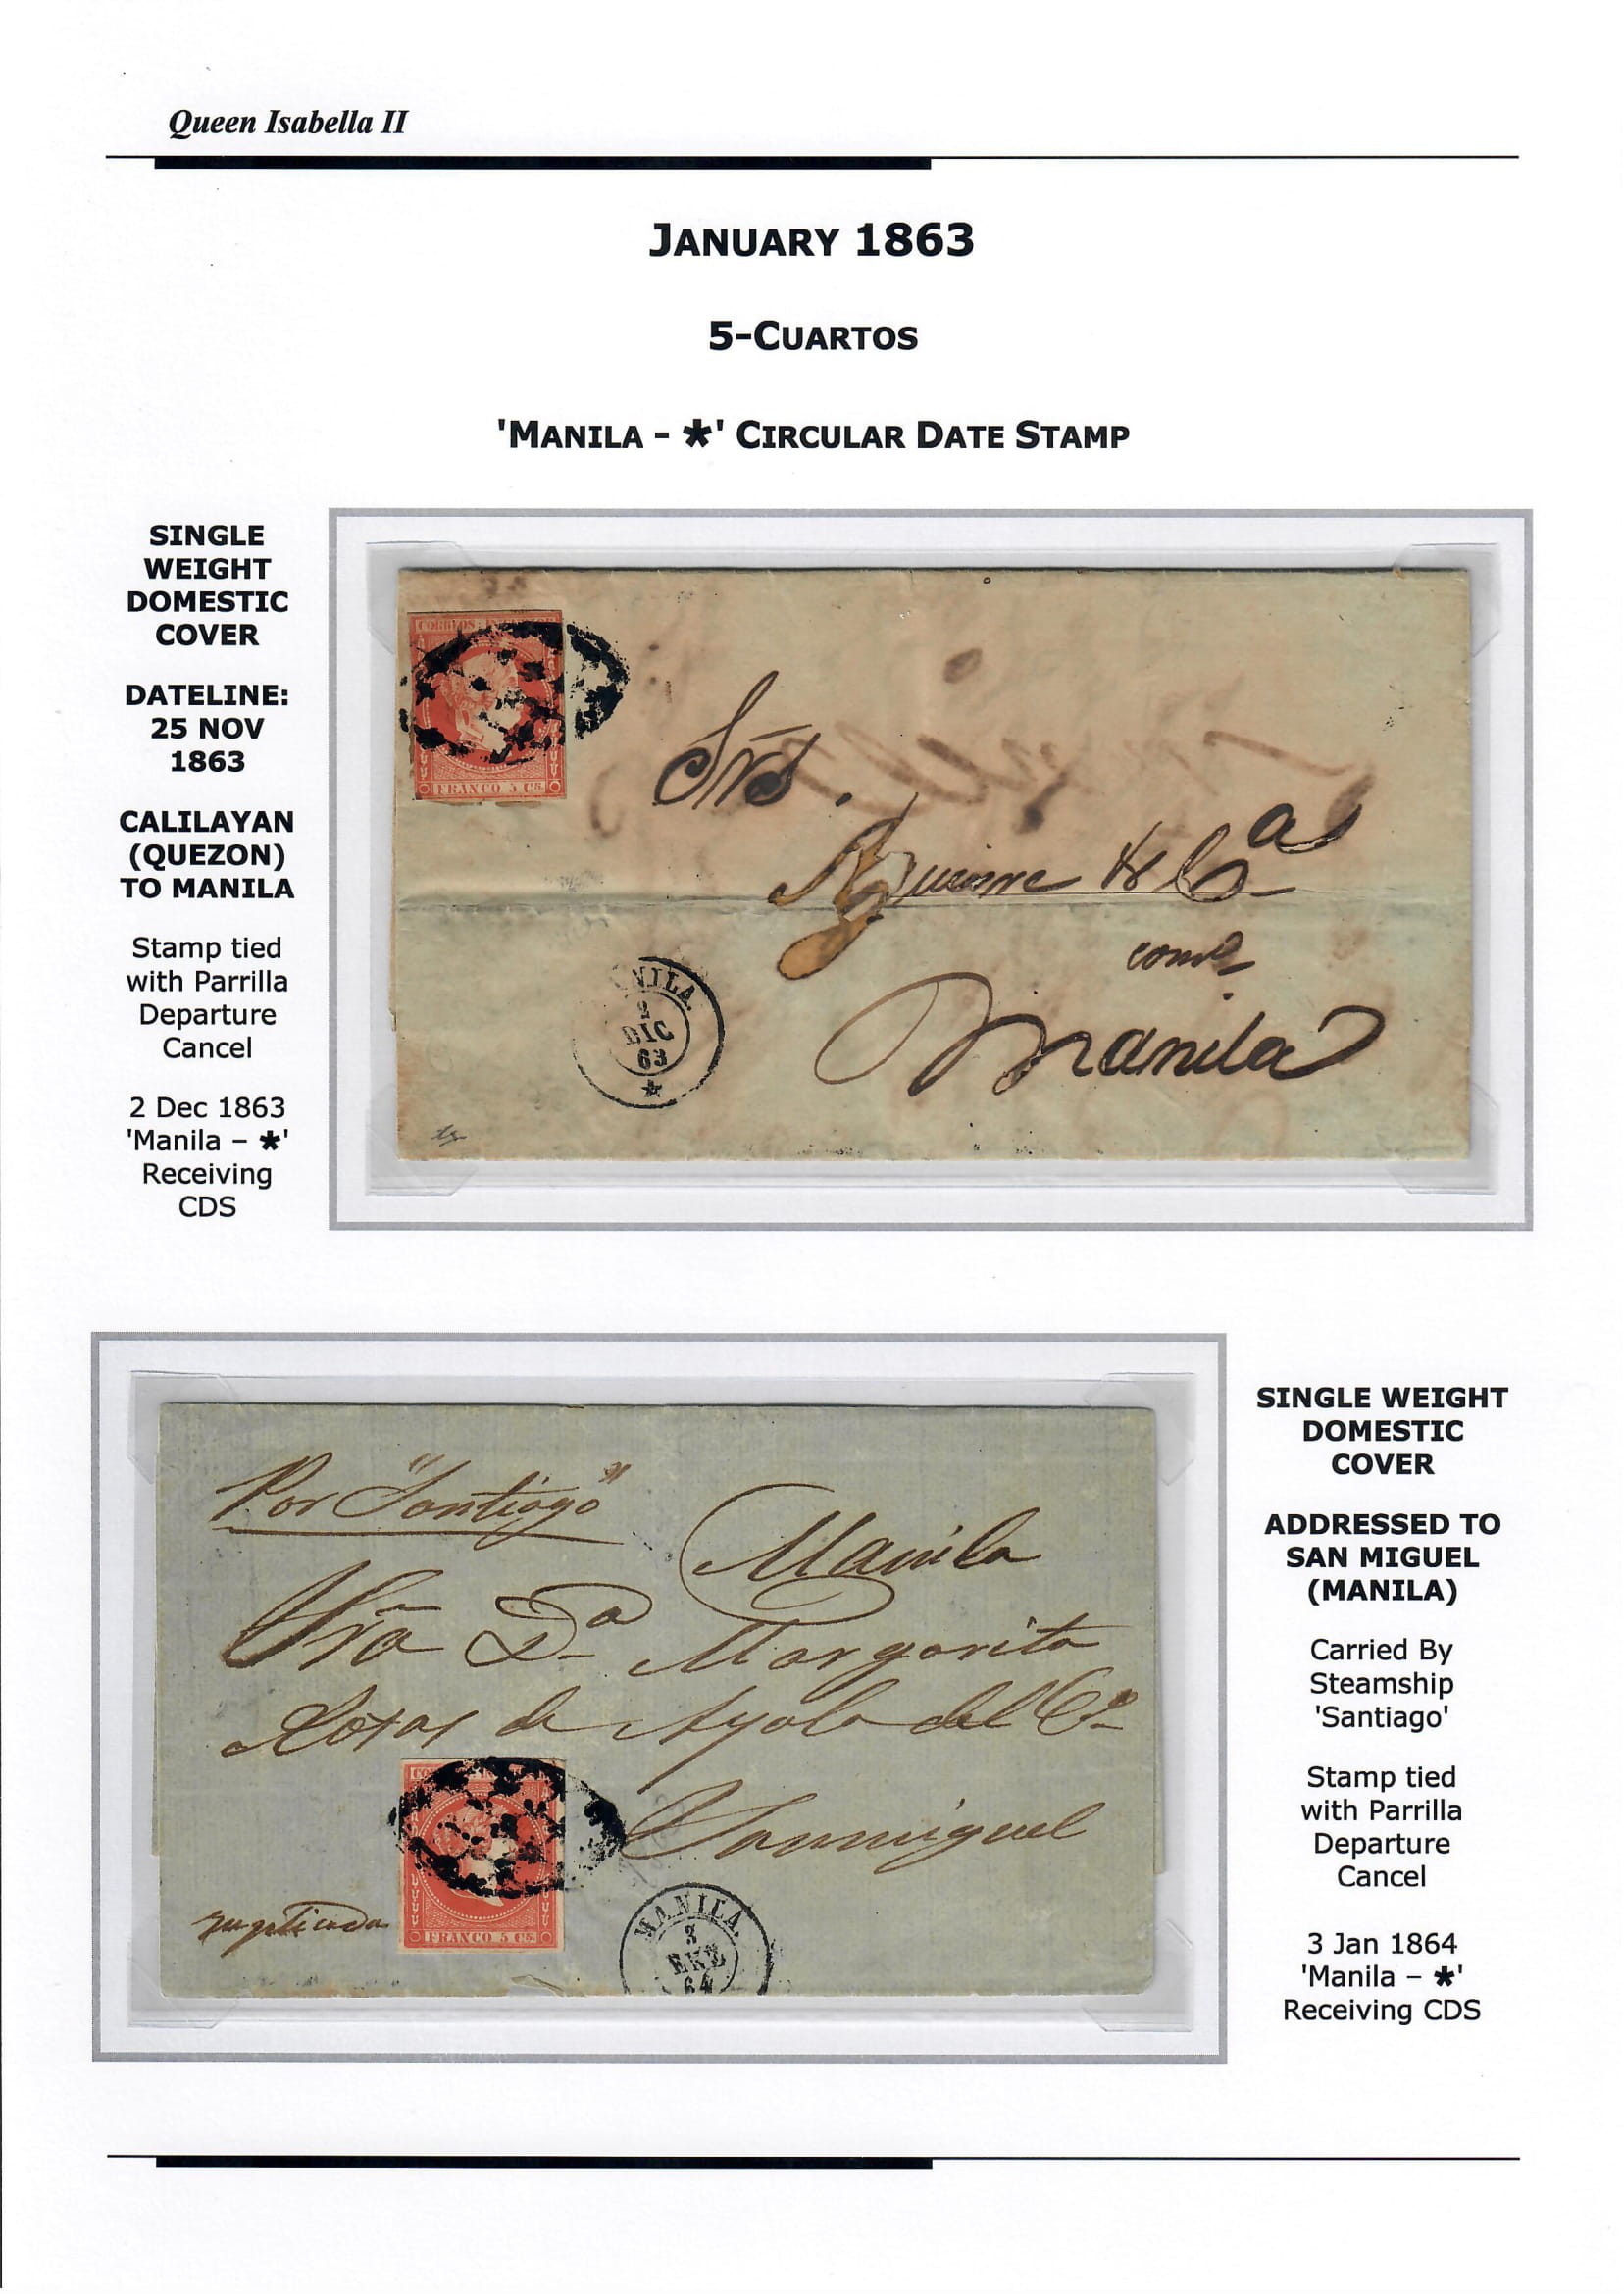 Queen Isabella II
JANUARY 1863
5-CUARTOS
'MANILA - *' CIRCULAR DATE STAMP
SINGLE
WEIGHT
DOMESTIC
COVER
DATELINE:
25 NOV
1863
CALILAYAN
(QUEZON)
TO MANILA
Stamp tied
with Parrilla
Departure
Cancel
2 Dec 1863
'Manila – *'
Receiving
CDS
CORREOS
FRANCO 5 Cs.
Srs.
Aguirre & Ca
Manila
NILA.
2
DIC
63
*
Por "Santiago"
Manila
Sra Da Margarita
Roxas de Ayala
Sanmiguel
FRANCO 5 Cs.
MANILA.
3
ENE
64
SINGLE WEIGHT
DOMESTIC
COVER
ADDRESSED TO
SAN MIGUEL
(MANILA)
Carried By
Steamship
'Santiago'
Stamp tied
with Parrilla
Departure
Cancel
3 Jan 1864
'Manila – *'
Receiving CDS